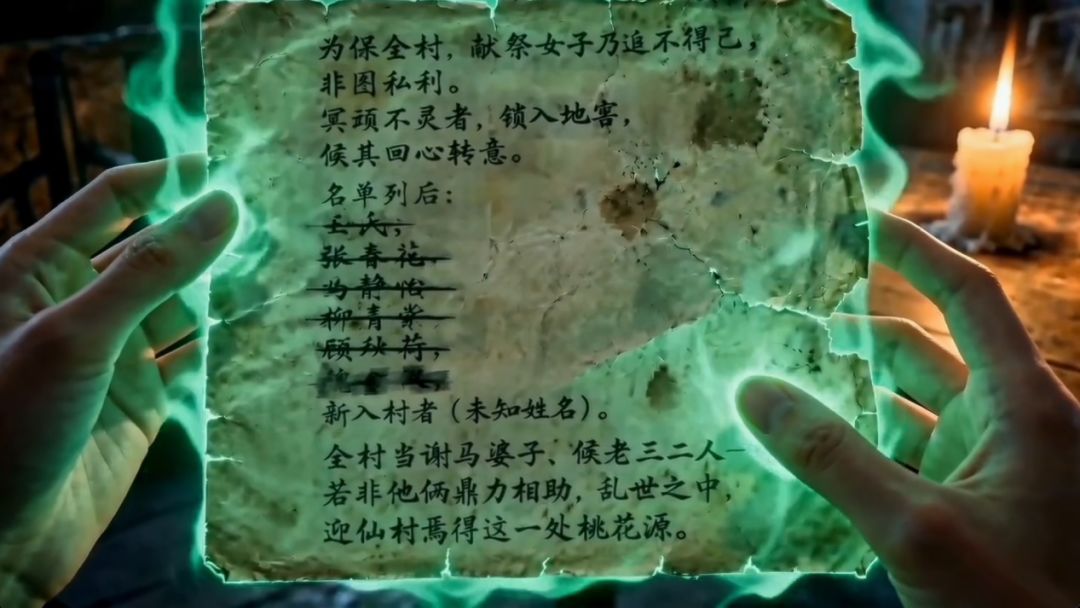 为保全村，献祭女子乃追不得己，
非图私利。
冥顽不灵者，锁入地窖，
候其回心转意。
名单列后：
王氏；
张春花
马静怡
柳青紫
顾秋荷；
新入村者（未知姓名）。
全村当谢马婆子、候老三二人—
若非他俩鼎力相助，乱世之中，
迎仙村焉得这一处桃花源。